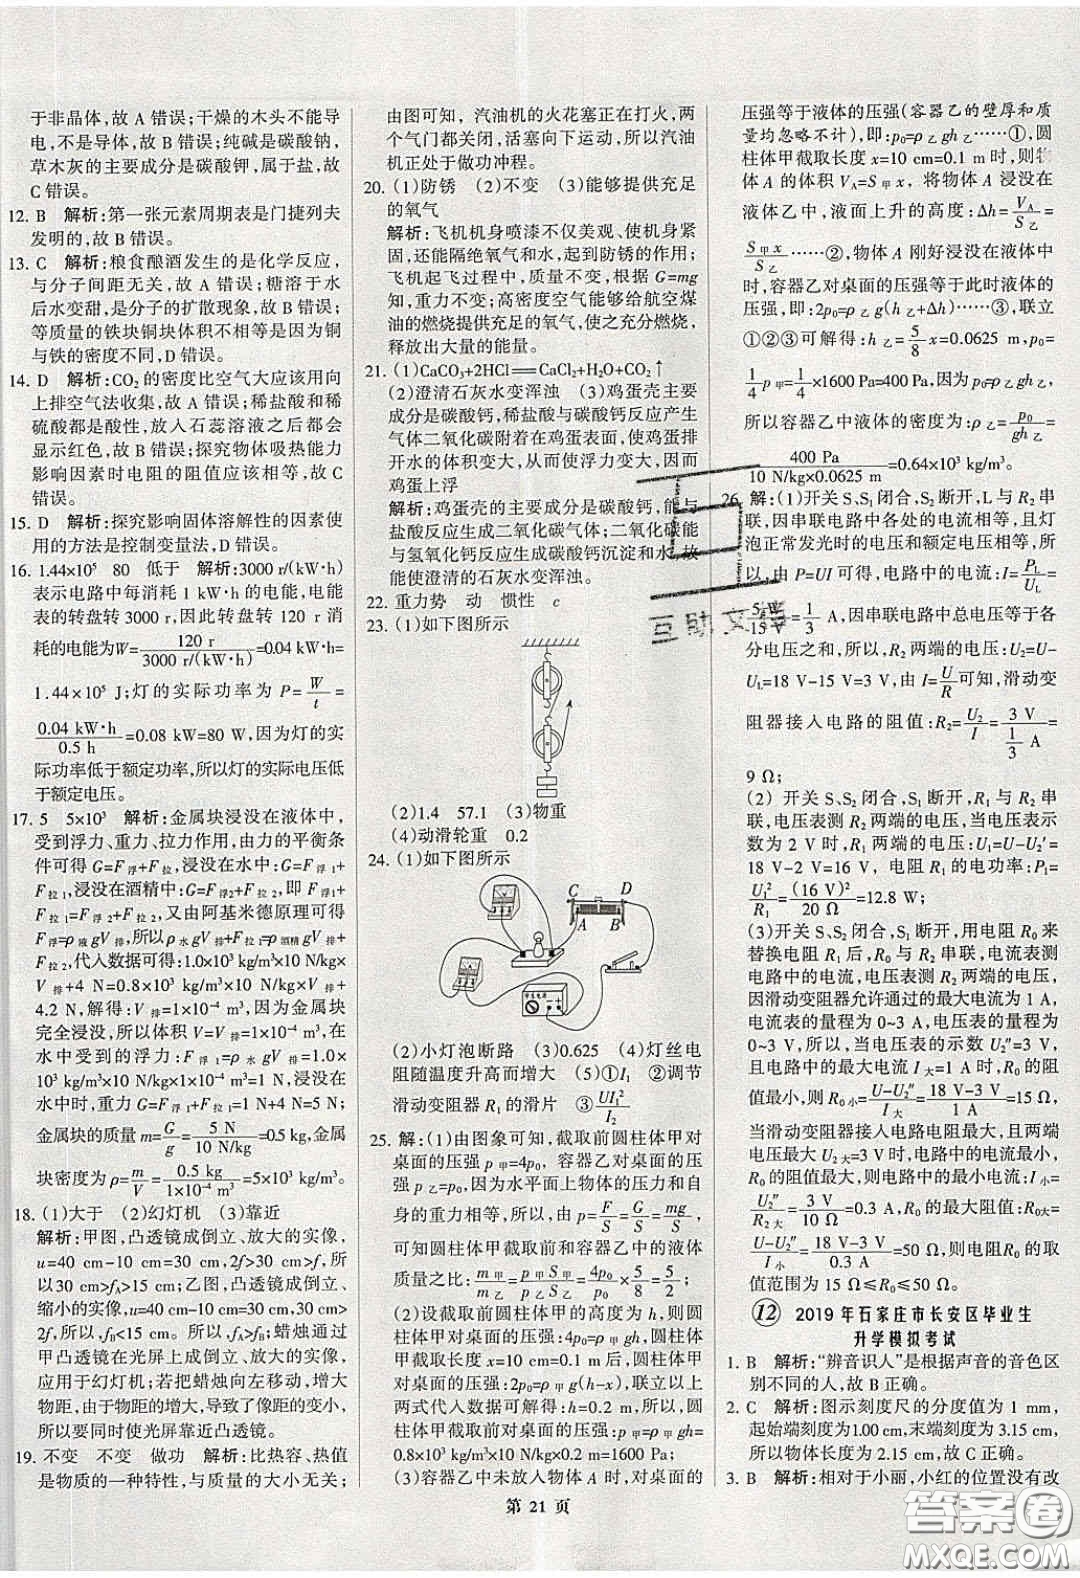 于非晶体,故 A 错误;干燥的木头不能导
电,不是导体,故 B 错误;纯碱是碳酸钠,
草木灰的主要成分是碳酸钾,属于盐,故
C 错误。
12. B 解析:第一张元素周期表是门捷列夫
发明的,故 B 错误。
13. C 解析:粮食酿酒发生的是化学反应,
与分子间距无关,故 A 错误;糖溶于水
后水变甜,是分子的扩散现象,故 B 错误;
等质量的铁块铜块体积不相等是因为铜
与铁的密度不同,D 错误。
14. D 解析:CO₂ 的密度比空气大应该用向
上排空气法收集,故 A 错误;稀盐酸和稀
硫酸都是酸性,放入石蕊溶液之后都会
显示红色,故 B 错误;探究物体吸热能力
影响因素时电阻的阻值应该相等,故 C
错误。
15. D 解析:探究影响固体溶解性的因素使
用的方法是控制变量法,D 错误。
16. 1.44×10⁵ 80 低于 解析:3000 r/(kW·h)
表示电路中每消耗 1 kW·h 的电能,电能
表的转盘转 3000 r,因此转盘转 120 r 消
耗的电能为W=120 r/3000 r/(kW·h)=0.04 kW·h=
1.44×10⁵ J;灯的实际功率为 P=W/t=
0.04 kW·h/0.5 h=0.08 kW=80 W,因为灯的实
际功率低于额定功率,所以灯的实际电压低
于额定电压。
17. 5 5×10³ 解析:金属块浸没在液体中,
受到浮力、重力、拉力作用,由力的平衡条
件可得 G=F浮+F拉,浸没在水中:G=F浮1+
F拉1,浸没在酒精中:G=F浮2+F拉2,即 F浮1+
F拉1=F浮2+F拉2,又由阿基米德原理可得
F浮=ρ液gV排,所以ρ水gV排+F拉1=ρ酒精gV排+
F拉2,代入数据可得:1.0×10³ kg/m³×10 N/kg
×V排+4 N=0.8×10³ kg/m³×10 N/kg×V排+
4.2 N,解得:V排=1×10⁻⁴ m³,因为金属块
完全浸没,所以体积 V=V排=1×10⁻⁴ m³,在
水中受到的浮力:F浮1=ρ水gV排=1.0×
10³ kg/m³×10 N/kg×1×10⁻⁴ m³=1 N,浸没
在水中时,重力 G=F浮1+F拉1=1 N+4 N=5 N;
金属块的质量 m=G/g=5 N/10 N/kg=0.5 kg,金属
块密度为 ρ=m/V=0.5 kg/1×10⁻⁴ m³=5×10³ kg/m³
18. (1)大于 (2)幻灯机 (3)靠近
解析:甲图,凸透镜成倒立、放大的实像,
u=40 cm-10 cm=30 cm,2f>30 cm>f,
所以30 cm>fA>15 cm;乙图,凸透镜成倒立、
缩小的实像,u=40 cm-10 cm=30 cm,30 cm>
2f,所以,fB<15 cm。故fA>fB;蜡烛通过
甲凸透镜在光屏上成倒立、放大的实像,
应用于幻灯机;若把蜡烛向左移动,增大
物距,由于物距的增大,导致了像距的变小,
所以要同时使光屏靠近凸透镜。
19. 不变 不变 做功 解析:比热容、热值
是物质的一种特性,与质量的大小无关;
由图可知,汽油机的火花塞正在打火,两
个气门都关闭,活塞向下运动,所以汽油
机正处于做功冲程。
20. (1)防锈 (2)不变 (3)能够提供充足
的氧气
解析:飞机机身喷漆不仅美观、使机身紧
固,还能隔绝氧气,起到防锈的作用;
飞机起飞过程中,质量不变,根据 G=mg
知,重力不变;高密度空气能够给航空煤
油的燃烧提供充足的氧气,使之充分燃烧,
释放出大量的能量。
21. (1)CaCO₃+2HCl══CaCl₂+H₂O+CO₂↑
(2)澄清石灰水变浑浊 (3)鸡蛋壳主要
成分是碳酸钙,稀盐酸与碳酸钙反应产生
气体二氧化碳附着在鸡蛋表面,使鸡蛋排
开水的体积变大,从而使浮力变大,因而
鸡蛋上浮
解析:鸡蛋壳的主要成分是碳酸钙,能与
盐酸反应生成二氧化碳气体;二氧化碳能
与氢氧化钙反应生成碳酸钙沉淀和水,故
能使澄清的石灰水变浑浊。
22. 重力势 动 惯性 c
23. (1)如下图所示
(2)1.4 57.1 (3)物重
(4)动滑轮重 0.2
24. (1)如下图所示
C D
A B
学生电源
(2)小灯泡断路 (3)0.625 (4)灯丝电
阻随温度升高而增大 (5)①I₁ ②调节
滑动变阻器 R₁ 的滑片 ③UI₁²/I₂
25. 解:(1)由图象可知,截取前圆柱体甲对
桌面的压强 p甲=4p₀,容器乙对桌面的压
强 p乙=p₀,因为水平面上物体的压力和自
身的重力相等,所以,由 p=F/S=G/S=mg/S,
可知圆柱体甲截取前和容器乙中的液体
质量之比:m甲/m乙=p甲S甲/p乙S乙=4p₀/p₀×5/8=5/2
(2)设截取前圆柱体甲的高度为 h,则截取
前圆柱体甲对桌面的压强:4p₀=ρ甲gh,截
取一段长度后,圆柱体甲剩余部分对桌
面的压强:2p₀=ρ甲g(h-x),联立以上
两式代入数据可得:h=0.2 m,截取前圆
柱体甲对桌面的压强:4p₀=ρ甲gh=
0.8×10³ kg/m³×10 N/kg×0.2 m=1600 Pa;
(3)容器乙中未放入物体 A 时,对桌面的
压强等于液体的压强(容器乙的壁厚和质
量均忽略不计),即:p₀=ρ乙gh乙……①,圆
柱体甲截取长度 x=10 cm=0.1 m 时,则物
体 A 的体积 VA=S甲x,将物体 A 浸没在
液体乙中,液面上升的高度:Δh=VA/S乙=
S甲x/S乙……②,物体 A 刚好浸没在液体中
时,容器乙对桌面的压强等于此时液体的
压强,即:2p₀=ρ乙g(h乙+Δh)……③,联立
①②③可解得:h乙=5/8x=0.0625 m,p₀=
1/4p甲=1/4×1600 Pa=400 Pa,因为 p₀=ρ乙gh乙,
所以容器乙中液体的密度为:ρ乙=p₀/gh乙=
400 Pa/10 N/kg×0.0625 m=0.64×10³ kg/m³。
26. 解:(1)开关 S、S₁ 闭合,S₂ 断开,L 与 R₂ 串
联,因串联电路中各处的电流相等,且灯
泡正常发光时的电压和额定电压相等,所
以,由 P=UI 可得,电路中的电流:I=PL/UL=
5 W/15 V=1/3 A,因串联电路中总电压等于各
分电压之和,所以,R₂ 两端的电压:U₂=U-
UL=18 V-15 V=3 V,由 I=U/R可知,滑动变
阻器接入电路的阻值:R₂=U₂/I=3 V/(1/3 A)=
9 Ω;
(2) 开关 S、S₂ 闭合,S₁ 断开,R₁ 与 R₂ 串
联,电压表测 R₂ 两端的电压,当电压表示
数为 2 V 时,R₁ 两端的电压:U₁=U-U₂′=
18 V-2 V=16 V,电阻 R₁ 的电功率:P₁=
U₁²/R₁=(16 V)²/20 Ω=12.8 W。
(3)开关 S、S₂ 闭合,S₁ 断开,用电阻 R₀ 来
替换电阻 R₁ 后,R₀ 与 R₂ 串联,电流表测
电路中的电流,电压表测 R₂ 两端的电压,
因滑动变阻器允许通过的最大电流为 1 A,
电流表的量程为 0~3 A,电压表的量程为
0~3 V,所以,电压表的示数 U₂″=3 V,
电路中的最大电流 I大=1 A 时,R₀ 的阻值
最小,则 R₀小=U-U₂″/I大=18 V-3 V/1 A=15 Ω,
当滑动变阻器接入电路电阻最大,且两端
电压最大 U₂大=3 V,电路中的电流最小,
R₀ 的阻值最大,电路中的最小电流:I小=
U₂″/R₂大=3 V/10 Ω=0.3 A,R₀ 的最大值:R₀大=
U-U₂″/I小=18 V-3 V/0.3 A=50 Ω,则电阻 R₀ 的取
值范围为 15 Ω≤R₀≤50 Ω。
⑫ 2019 年石家庄市长安区毕业生
升学模拟考试
1. B 解析:“辨音识人”是根据声音的音色区
别不同的人,故 B 正确。
2. C 解析:图示刻度尺的分度值为 1 mm,
起始端刻度为1.00 cm,末端刻度为 3.15 cm,
所以物体长度为 2.15 cm,故 C 正确。
3. B 解析:相对于小丽,小红的位置没有改
互助文博
第 21 页
答案圈
MXQE.COM